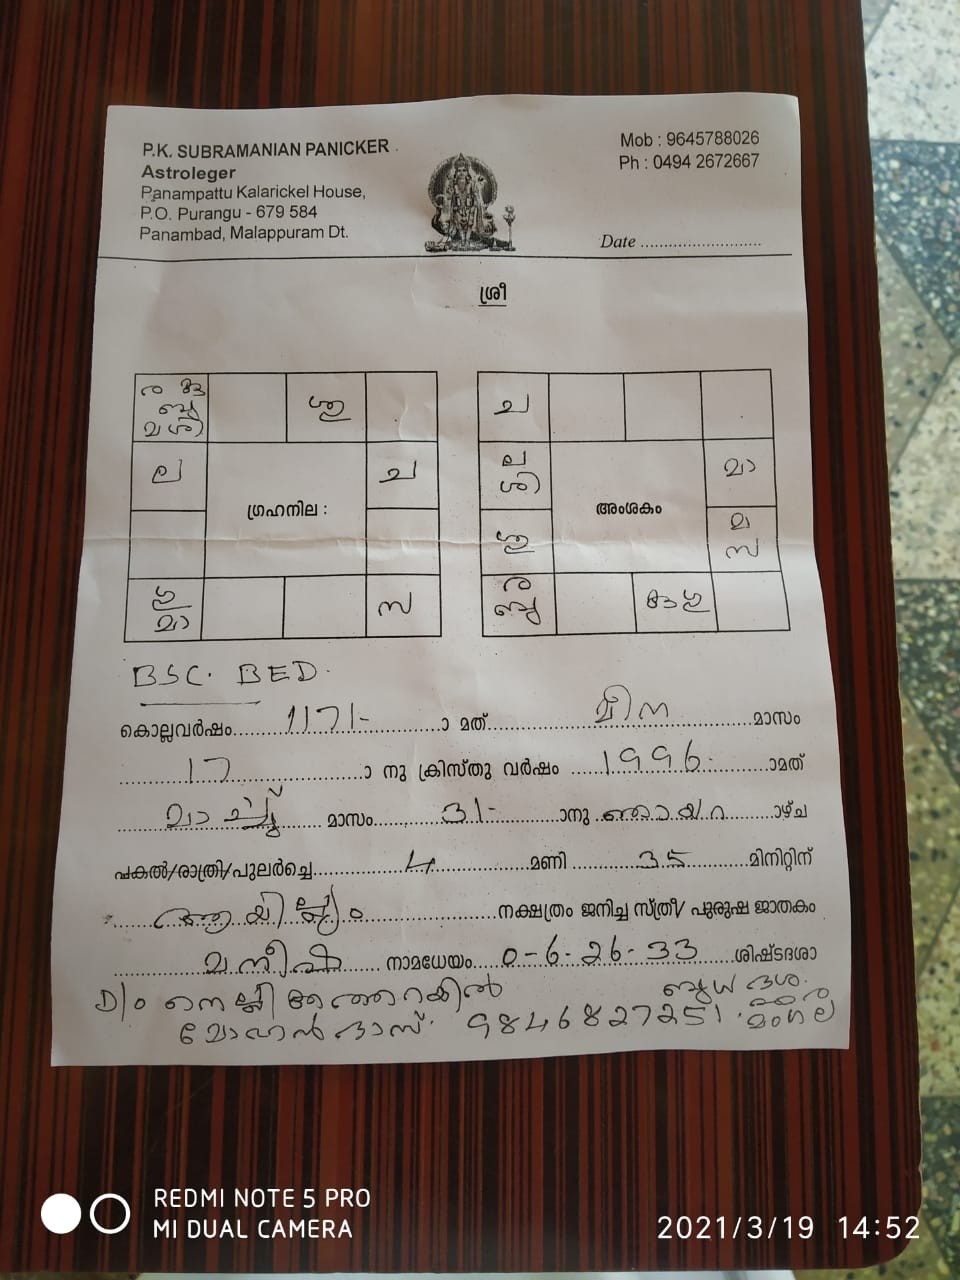 P.K. SUBRAMANIAN PANICKER
Astroleger
Panampattu Kalarickel House,
P.O. Purangu - 679 584
Panambad, Malappuram Dt.
Mob : 9645788026
Ph : 0494 2672667
Date ..........................
ശ്രീ
ര കു
ബു
മ ശി
ശു
ല
ച
ഗ്രഹനില :
ഗു
മാ
സ
ച
ല
ശി
മാ
അംശകം
ഗു
മ
സ
ര
ബു
കു ശു
BSC. BED.
കൊല്ലവർഷം 1171- ാ മത് മീന മാസം
17 ാ നു ക്രിസ്തു വർഷം 1996 ാമത്
മാർച്ച് മാസം 31- ാനു ഞായറ ാഴ്ച
പകൽ/രാത്രി/പുലർച്ചെ 4 മണി 35 മിനിറ്റിന്
ആയില്ല്യം നക്ഷത്രം ജനിച്ച സ്ത്രീ/ പുരുഷ ജാതകം
മനീഷ നാമധേയം 0-6-26-33 ശിഷ്ടദശാ
D/o ബുധ ദശ
മോഹൻ ദാസ്. 9846827251.